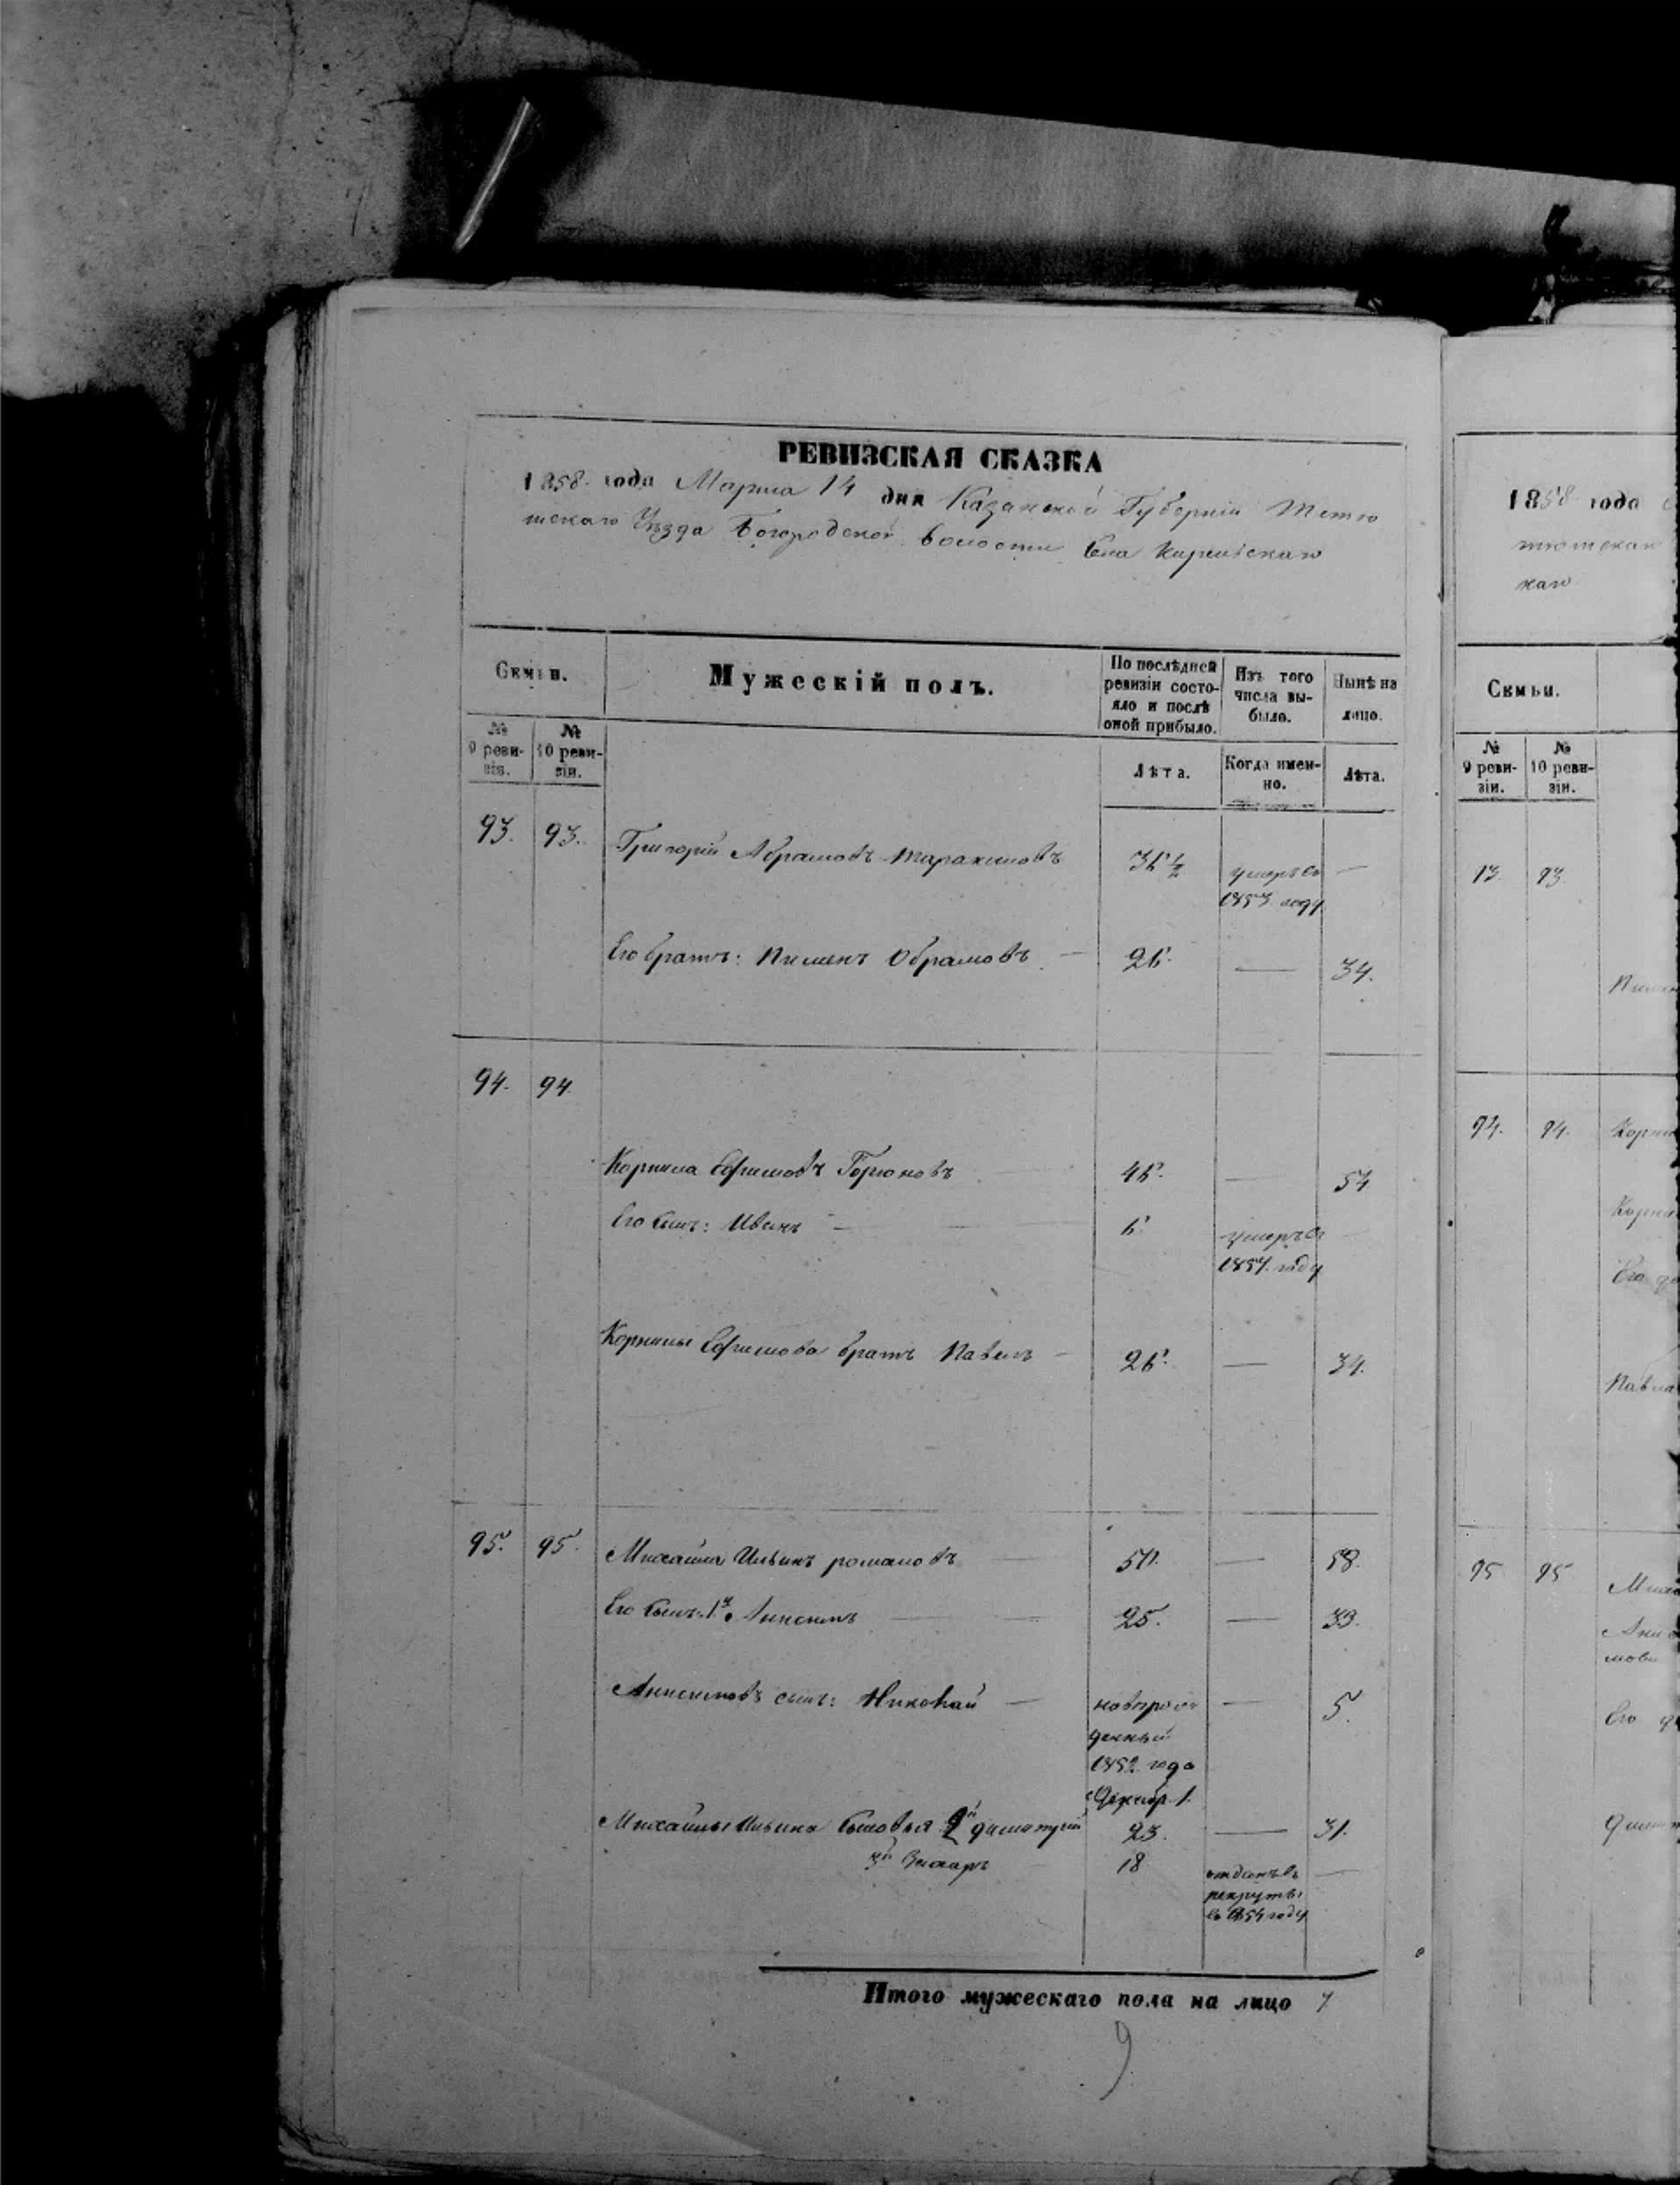 РЕВИЗСКАЯ СКАЗКА
1858 года Марта 14 дня Казанской Губернiи Тетю
шскаго Уѣзда Богородской волости Села
Семьи.
Мужескій полъ.
По послѣдней
ревизіи состо-
яло и послѣ
оной прибыло.
Изъ того
числа вы-
было.
Нынѣ на
лицо.
№
9 реви-
зіи.
№
10 реви-
зіи.
Лѣта.
Когда имен-
но.
Лѣта.
93. 93. Григорій Абрамовъ 36 1/2 умеръ въ —
1853 году
Его братъ: Пименъ Абрамовъ — 26. — 34.
94. 94.
Корнила Ефимовъ Горюновъ 46. — 54
Его сынъ: Иванъ — 6. умеръ въ
1857 году
Корнилы Ефимова братъ Павелъ — 26. — 34.
95. 95. Михайла Ильинъ романовъ — 50. — 58.
Его сынъ 1й Анисимъ — 25. — 33.
Анисимовъ сынъ: Николай — новорож — 5.
денный
1852 года
Декабр. 1.
Михайлы Ильина сыновья 2й Дмитрій 23. — 31.
3й Захаръ 18 отданъ въ —
рекруты
въ 1854 году
Итого мужескаго пола на лицо 7
9
1858 года
тюшскаго
каго
Семьи.
№
9 реви-
зіи.
№
10 реви-
зіи.
93 93
94. 94.
95 95